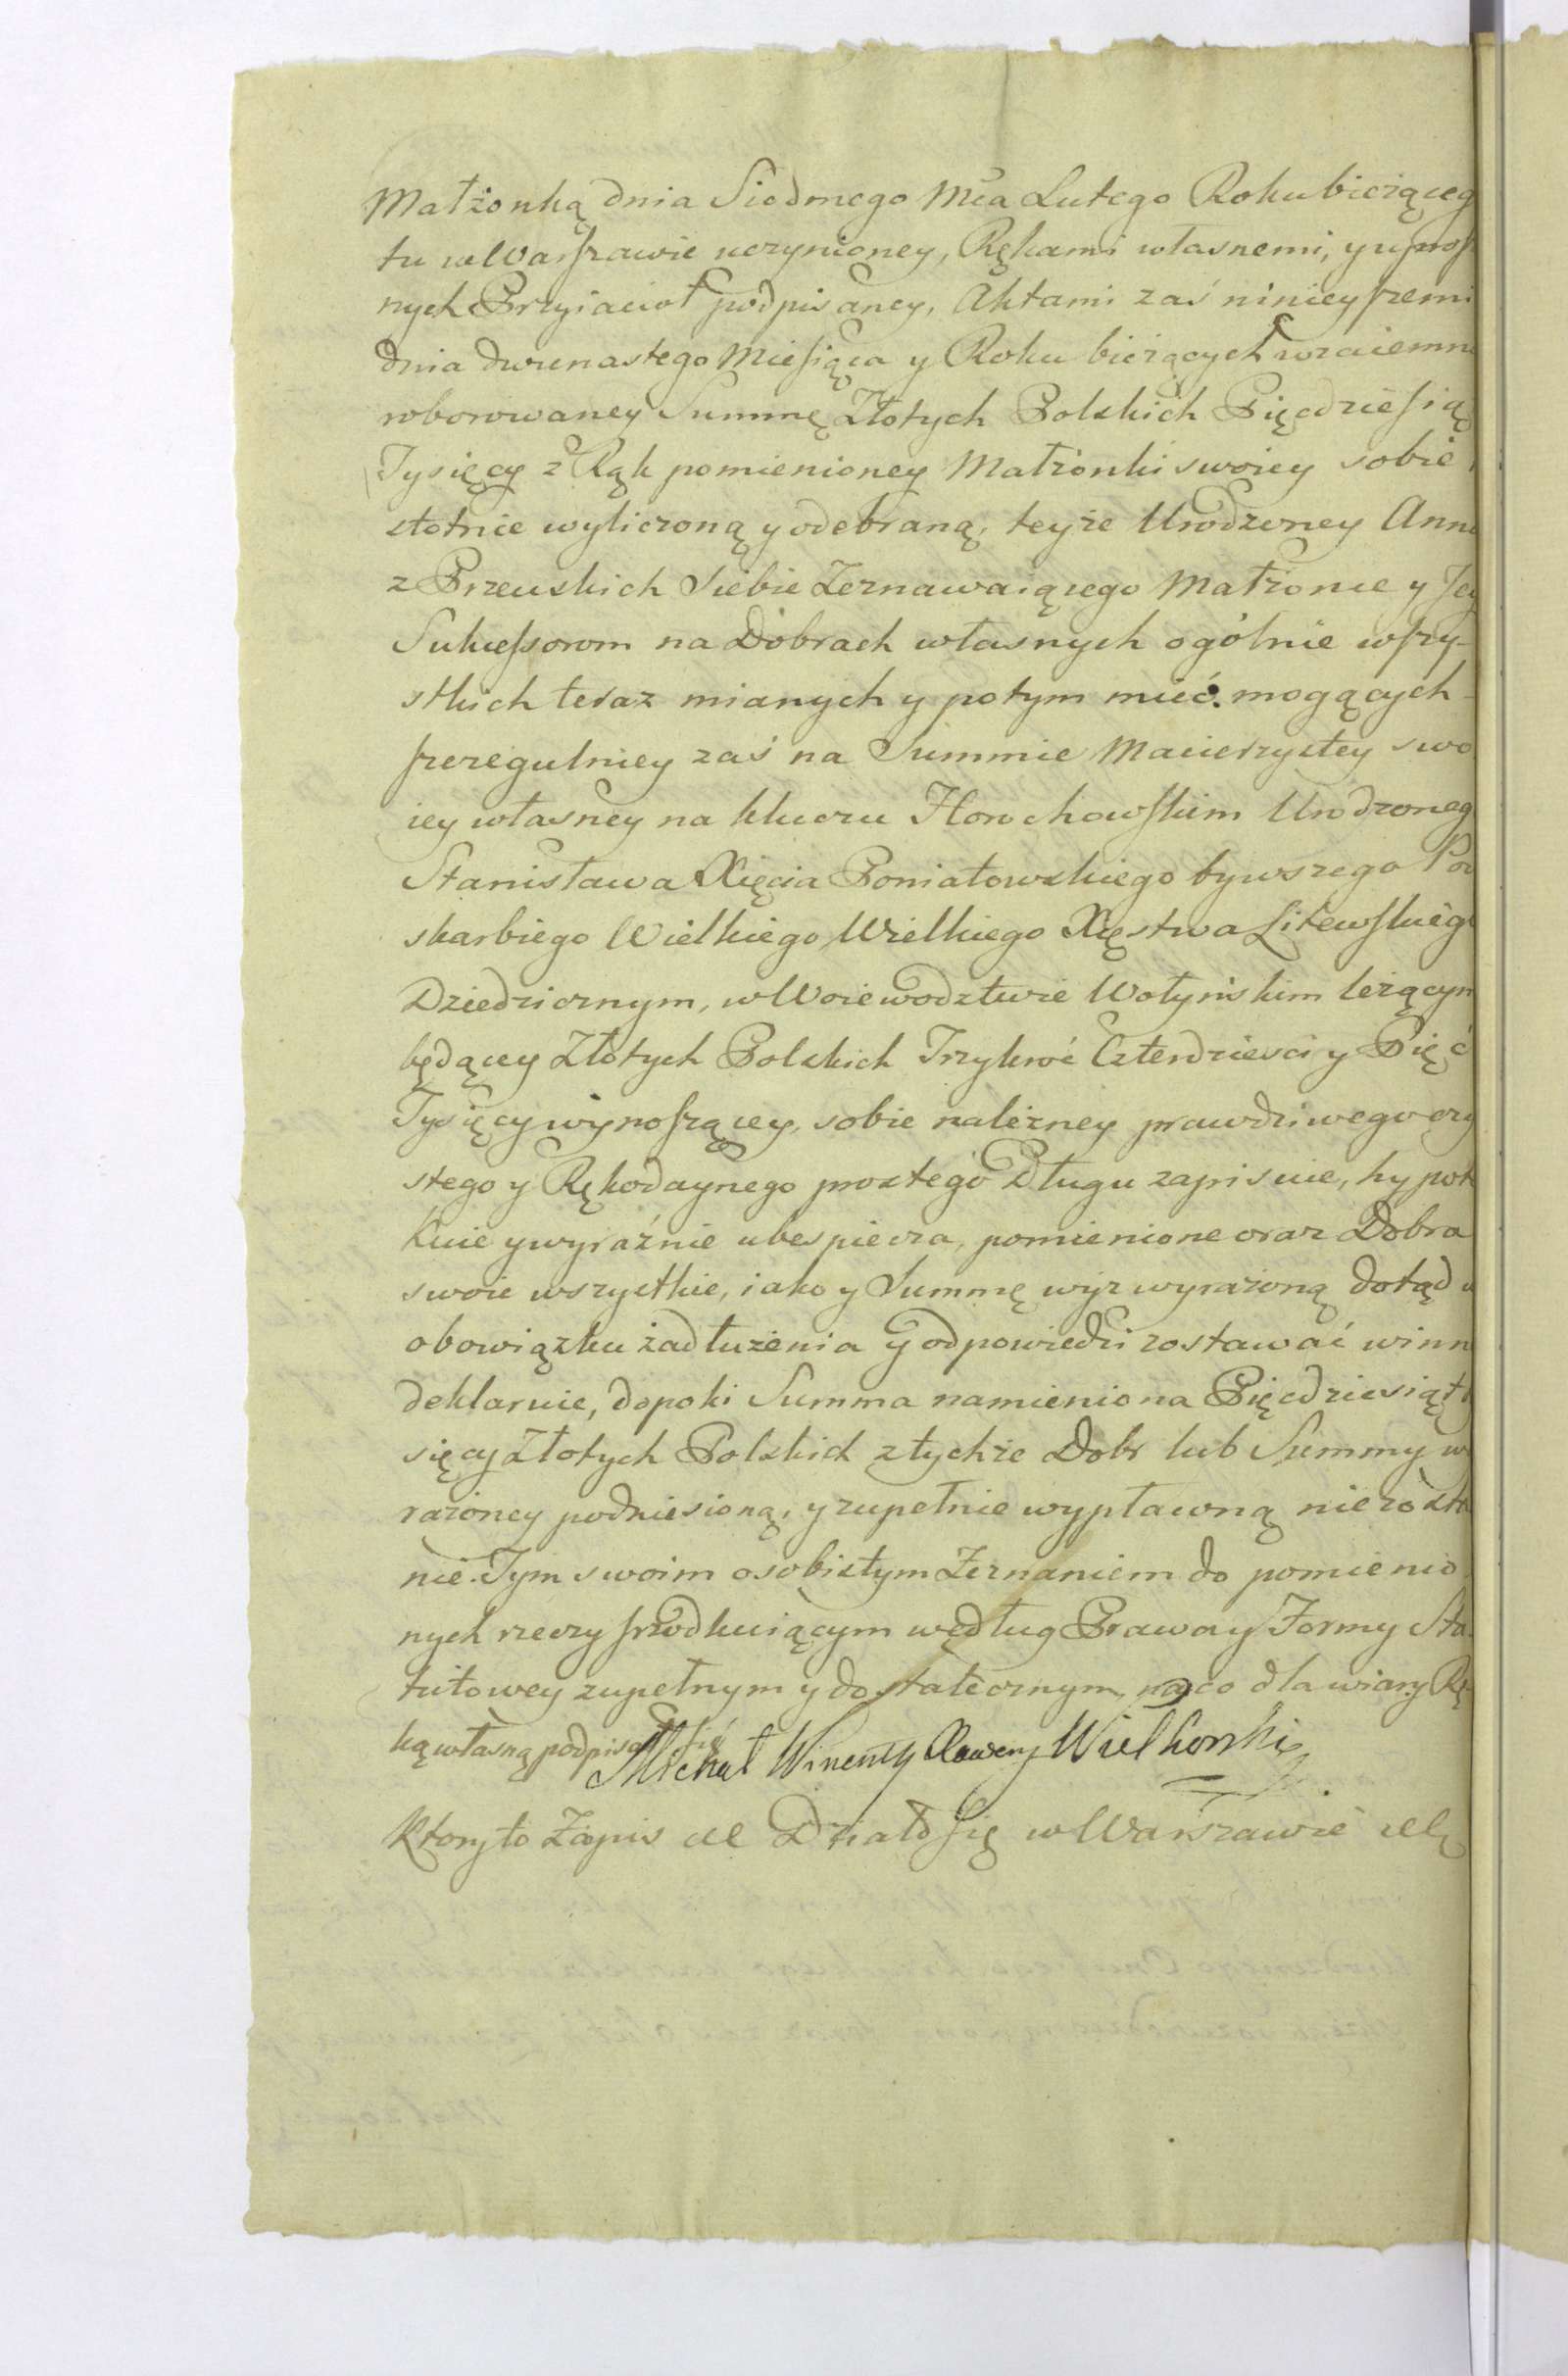 Małżonką dnia Siodmego Mca Lutego Roku bieżąceg
tu w Warszawie uczynioney, Rękami własnemi, y uprosz
nych Przyiacioł podpisaney, Aktami zaś ninieyszemi
dnia dwunastego Miesiąca y Roku bieżących wzaiemnie
roborowaney Summę Złotych Polskich Pięcdziesią
Tysięcy z Rąk pomienioney Małżonki swoiey sobie
stotnie wyliczoną y odebraną, teyże Urodzoney Anni
z Przeuskich Siebie Zeznawaiącego Małżonce y Jey
Sukcessorom na Dobrach własnych ogólnie wszy-
stkich teraz mianych y potym mieć mogących
szczegulniey zaś na Summie Macierzystey swo
iey własney na kluczu Horochowskim Urodzoneg
Stanisława Xięcia Poniatowskiego bywszego Pod
skarbiego Wielkiego Wielkiego Xięstwa Litewskiego
Dziedzicznym, w Woiewodztwie Wołyńskim leżącym
będącey Złotych Polskich Trzykroć Czterdziesci y Pięć
Tysięcy wynoszącey, sobie należney prawdziwego czy
stego y Rękodaynego prostego Długu zapisuie, hypote
kuie y wyraźnie ubespiecza, pomienione oraz Dobra
swoie wszystkie, iako y Summę wyż wyrażoną dotąd w
obowiązku zadłużenia y odpowiedzi zostawać winn
deklaruie, dopoki Summa namieniona Pięcdziesiąt ty
sięcy Złotych Polskich z tychże Dobr lub Summy wy
rażoney podniesioną, y zupełnie wypławną nie zosta
nie. Tym swoim osobistym Zeznaniem do pomienio
nych rzeczy srzodkuiącym według Prawa y Formy Sta
tutowey zupełnym y dostatecznym, na co dla wiary Rę
ką własną podpisał się
Michał Wincenty Xawery Wielhorski
Ktory to Zapis ut Działo się w Warszawie